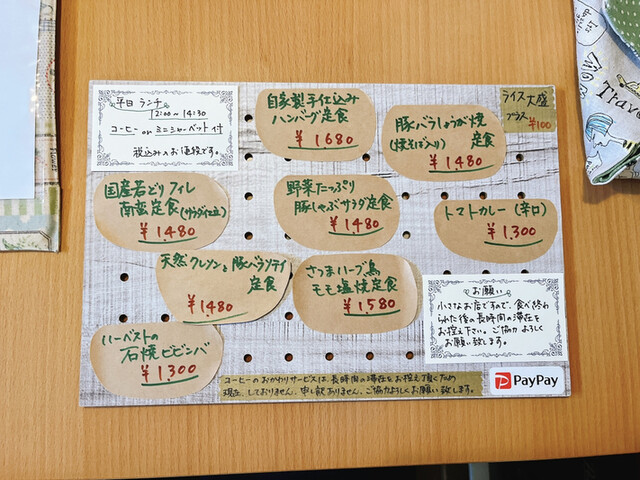 平日 ランチ
12:00~14:30
コーヒー or ミニシャーベット付
税込みのお値段です。
自家製手仕込み
ハンバーグ定食
¥1680
豚バラしょうが焼
(焼そば入り) 定食
¥1.480
ライス大盛
プラス
¥100
国産若どりフィレ
南蛮定食(サラダ仕立)
¥1.480
野菜たっぷり
豚しゃぶサラダ定食
¥1480
トマトカレー(辛口)
¥1.300
天然クレソンと豚バラソテイ
定食
¥1480
さつまハーブ鳥
モモ塩焼定食
¥1.580
ハーベストの
石焼ビビンバ
¥1300
お願い
小さなお店ですので、食べ終わ
られた後の長時間の滞在を
お控え下さい。ご協力よろしく
お願い致します。
コーヒーのおかわりサービスは、長時間の滞在をお控え頂くため
現在、しておりません。申し訳ありません。ご協力よろしくお願い致します。
PayPay
Travel